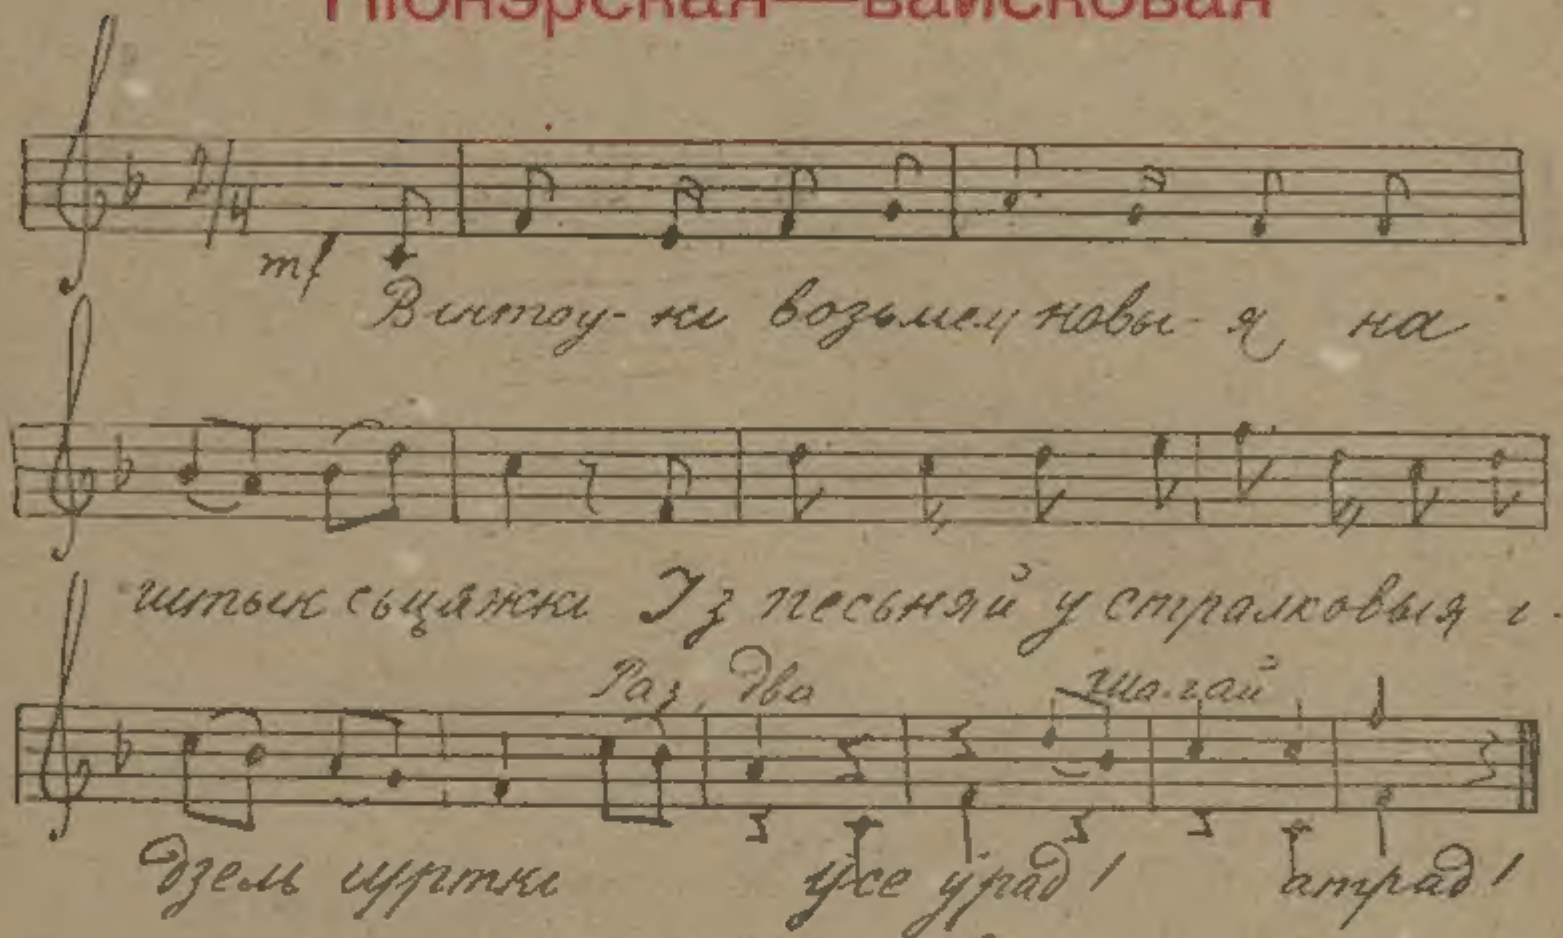 Піонэрская—вайсковая
2/4
mf
Вінтоу-кі возьмем новы-я на
штык сьцяжкі Із песьняй у стралковыя і-
Раз, два ша-гай
дзель гурткі усе ў рад! атрад!